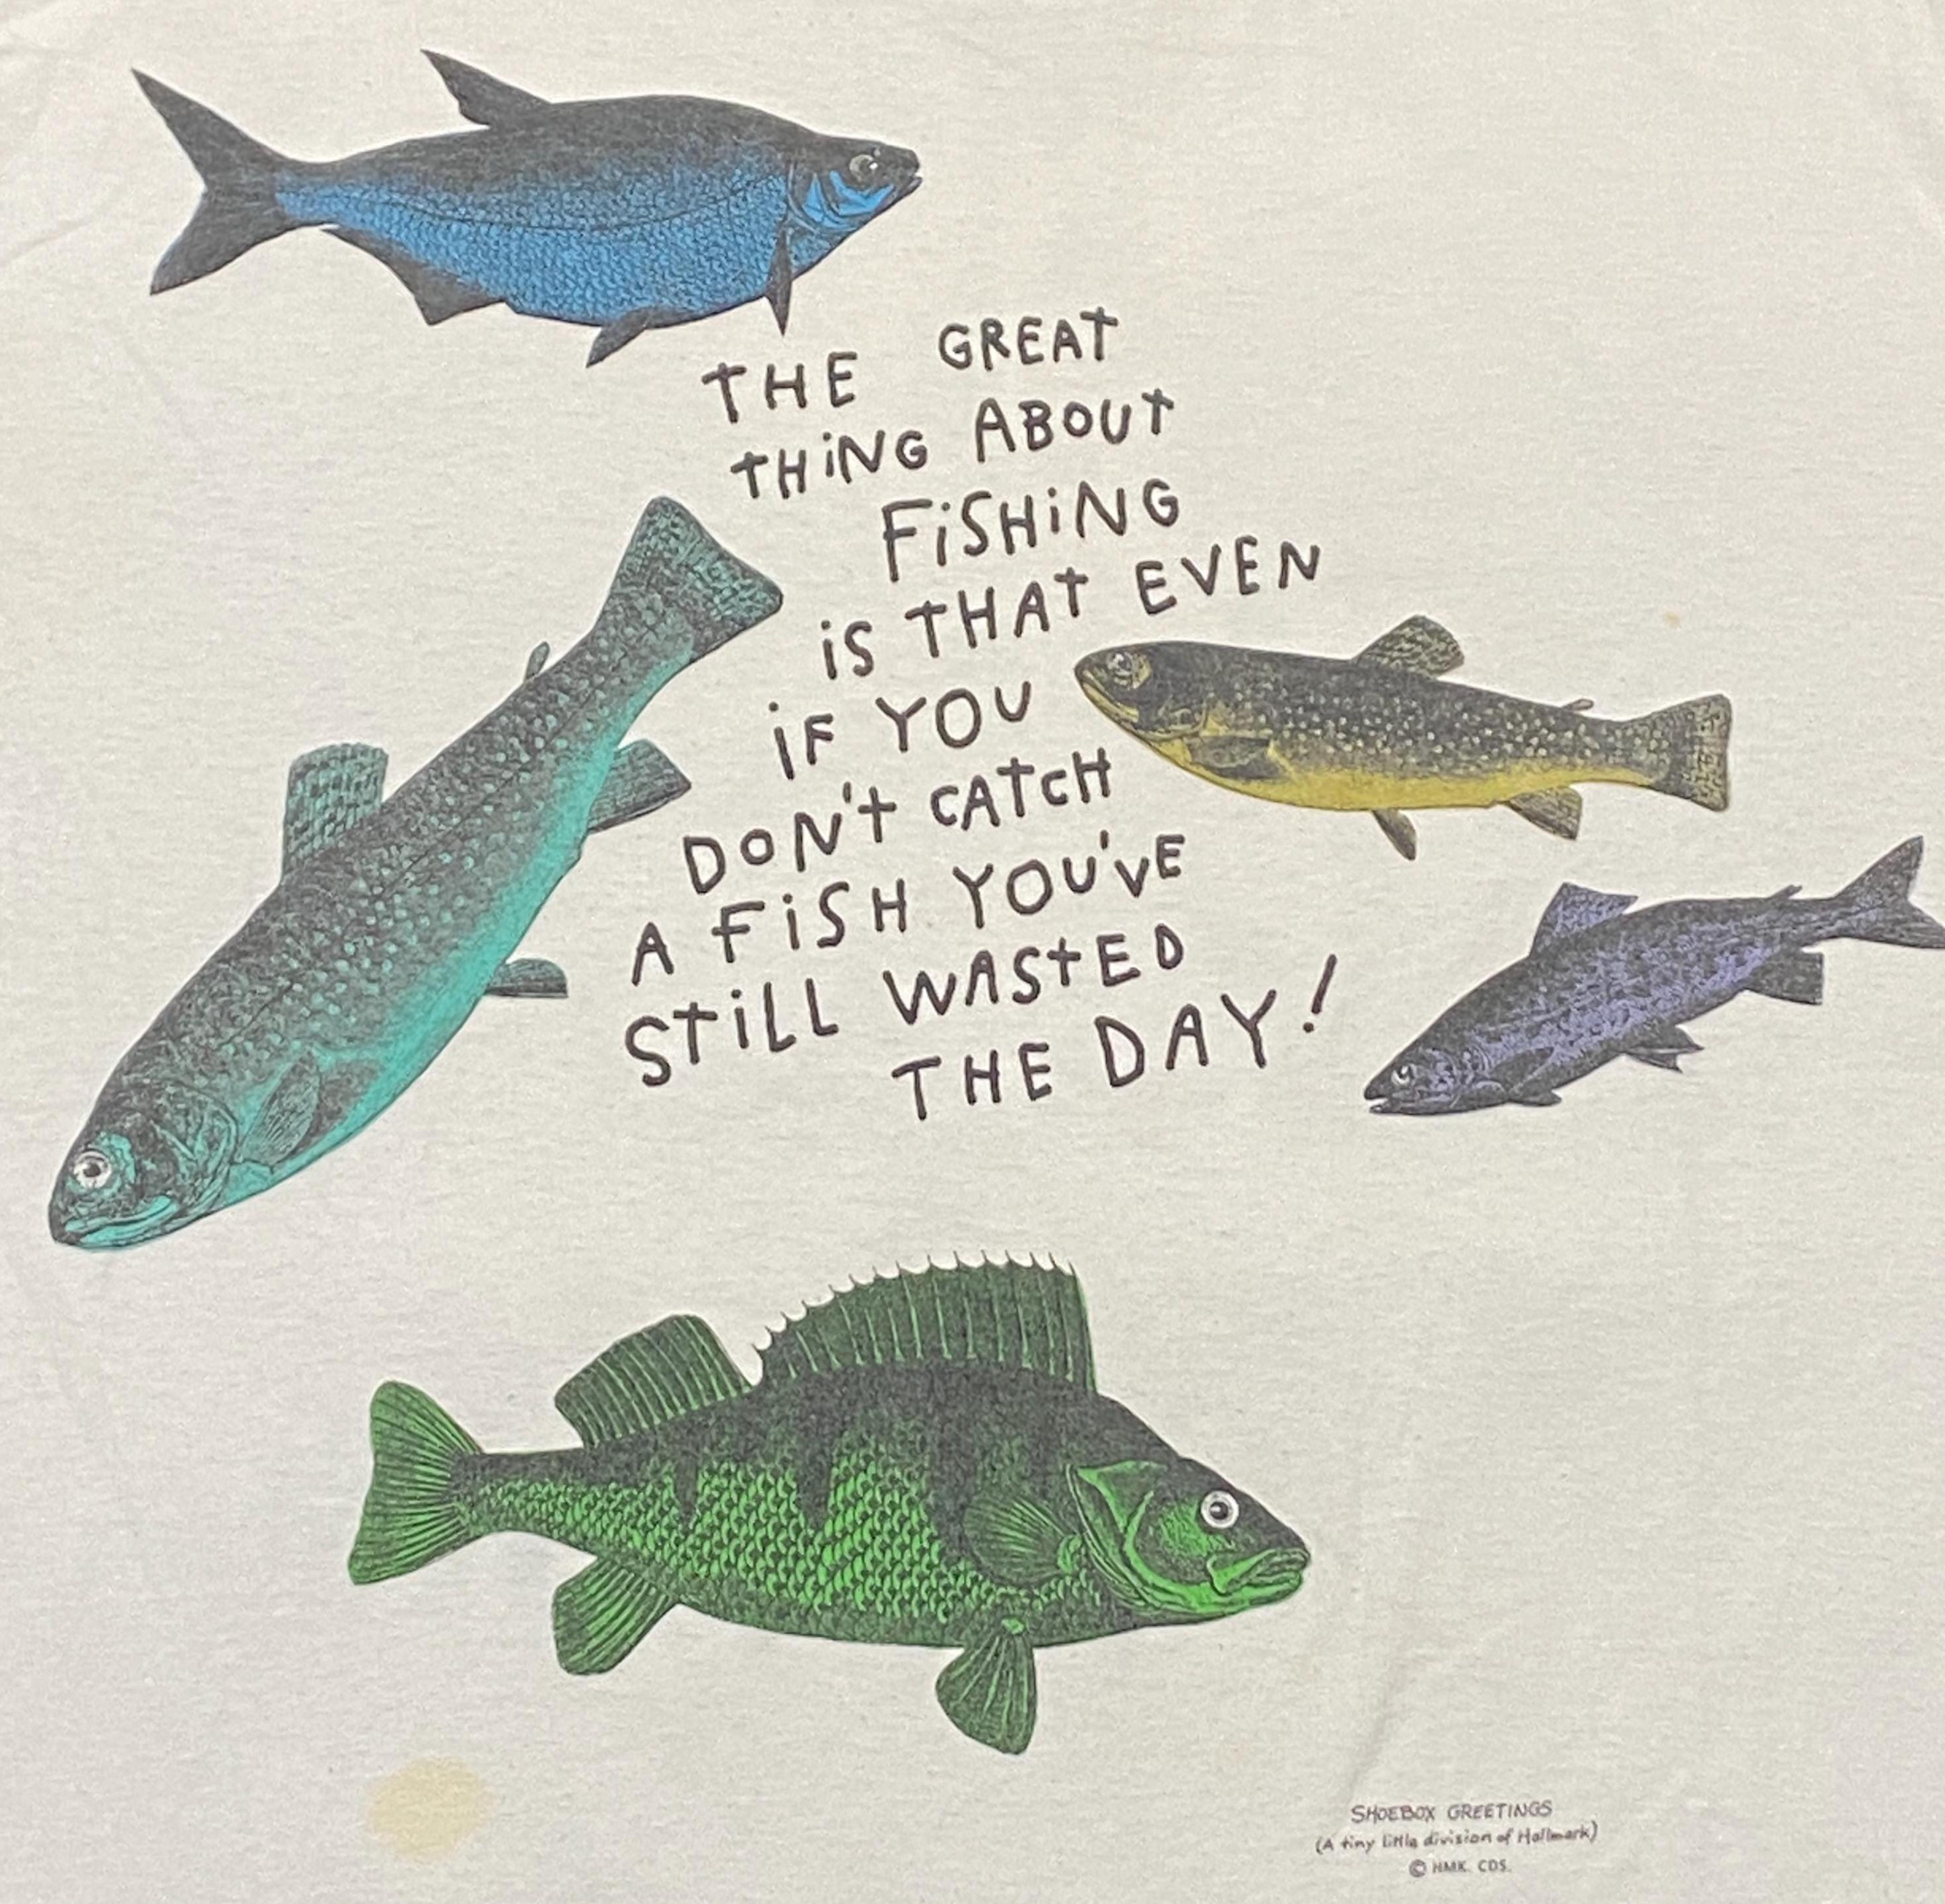 THE GREAT
THiNG ABOUT
FiSHiNG
iS THAT EVEN
iF YOU
DON'T CATCH
A FiSH YOU'VE
STiLL WASTED
THE DAY!
SHOEBOX GREETINGS
(A tiny little division of Hallmark)
© HMK. CDS.